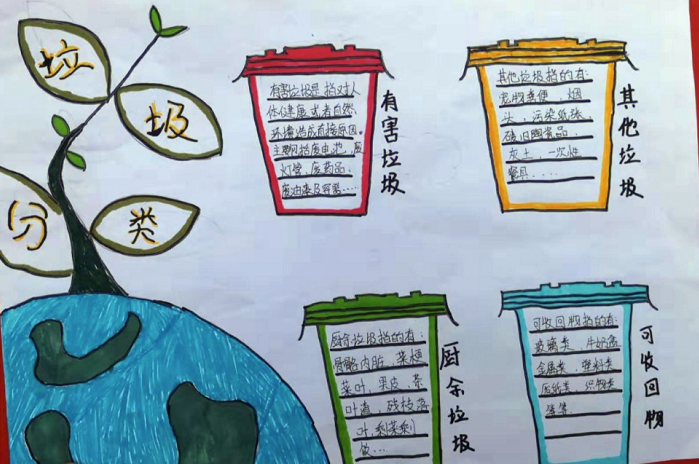 垃
圾
分
类
有害垃圾是指对人
体健康或者自然
环境造成直接
主要包括废电池、废
灯管、废药品、
废油漆及容器...
有害垃圾
其他垃圾指的有:
宠物粪便、烟
头、污染纸张、
破旧陶瓷品、
灰土、一次性
餐具....
其他垃圾
厨余垃圾指的有:
骨骼内脏、菜梗
菜叶、果皮、茶
叶渣、残枝落
叶、剩菜剩
饭...
厨余垃圾
可收回物指的有:
玻璃类、牛奶盒
金属类、塑料类
废纸类、织物类
等等
可收回物